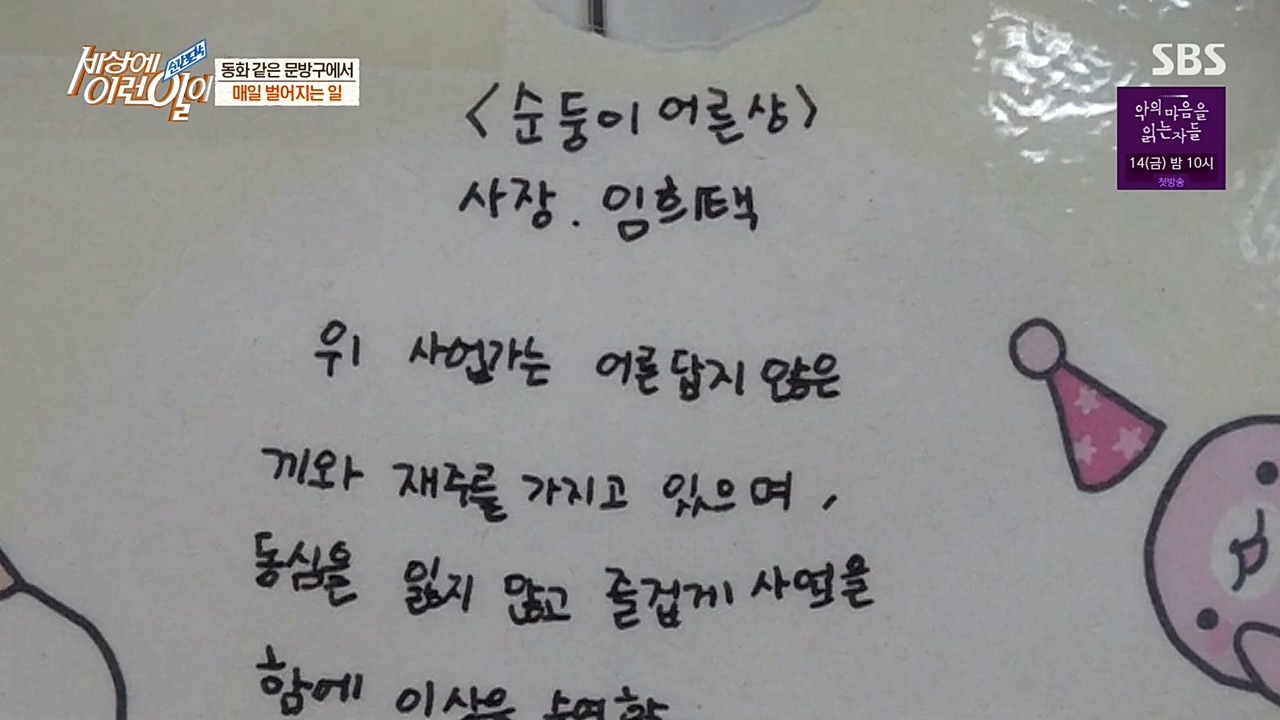 순간포착
세상에
이런일이
동화 같은 문방구에서
매일 벌어지는 일
SBS
악의 마음을
읽는 자들
14(금) 밤 10시
첫방송
<순둥이 어른상>
사장. 임희택
위 사업가는 어른답지 않은
끼와 재주를 가지고 있으며,
동심을 잃지 않고 즐겁게 사업을
함에 이상을 수여함